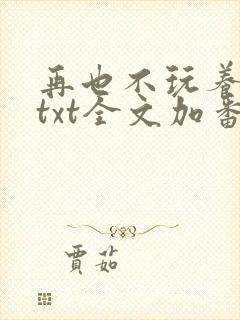 再也不玩养
txt全文加番
贾茹